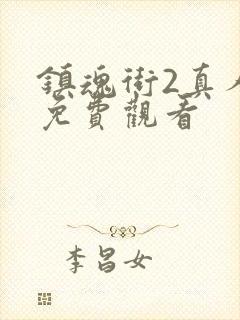 鎮魂街2真人
免費觀看
李昌女